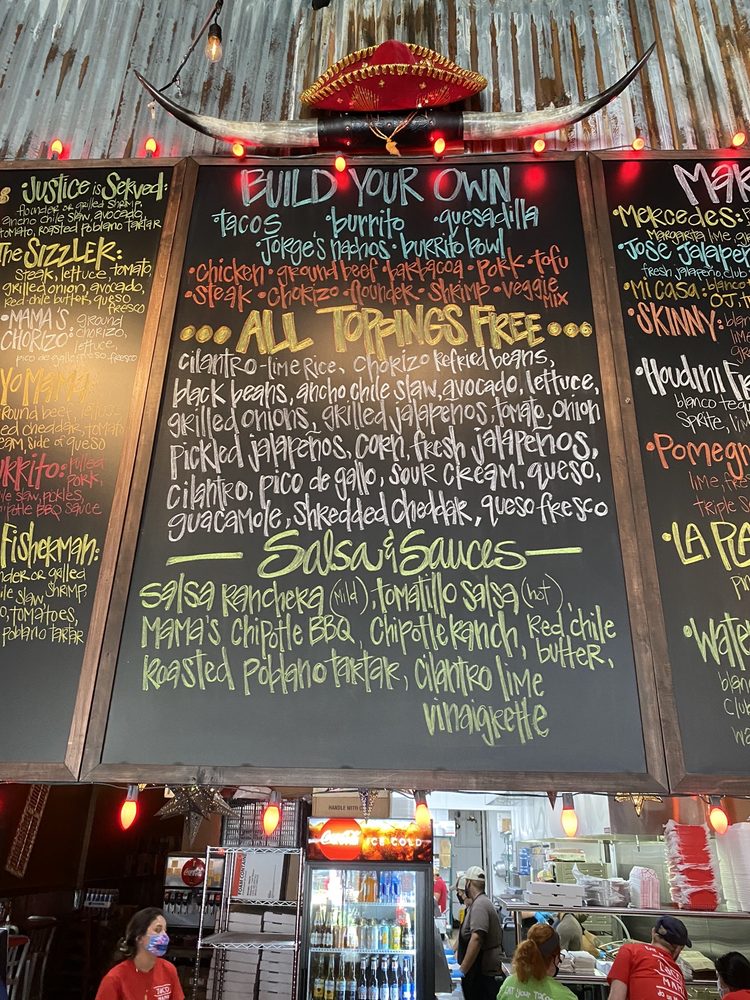 Justice is Served:
flounder or grilled shrimp,
ancho chile slaw, avocado,
tomato, roasted poblano tartar
The Sizzler:
steak, lettuce, tomato,
grilled onion, avocado,
red chile butter, queso
fresco
•Mama's ground
Chorizo: chorizo,
lettuce,
pico de gallo, queso fresco
Yo Mama:
ground beef, lettuce,
cheddar, tomato,
side of queso
pulled
pork,
slaw, pickles,
chipotle BBQ sauce
Fisherman:
or grilled
slaw, shrimp,
tomatoes,
poblano tartar
Build Your Own
•tacos •burrito •quesadilla
•Jorge's nachos •burrito bowl
•chicken •ground beef •barbacoa •pork •tofu
•steak •chorizo •flounder •shrimp •veggie mix
All Toppings Free
cilantro-lime rice, chorizo refried beans,
black beans, ancho chile slaw, avocado, lettuce,
grilled onions, grilled jalapeños, tomato, onion
pickled jalapeños, corn, fresh jalapeños,
cilantro, pico de gallo, sour cream, queso,
guacamole, shredded cheddar, queso fresco
Salsa & Sauces
salsa ranchera (mild), tomatillo salsa (hot),
Mama's Chipotle BBQ, Chipotle Ranch, Red chile butter,
Roasted Poblano tartar, cilantro lime
vinaigrette
•Mercedes:
margarita
Jose Jalape
fresh jalapeño, club
•Mi Casa:
•Skinny:
•Houdini
blanco
sprite,
•Pomegr
lime,
triple s
•La Pa
•Wate
blanc
club
HANDLE WITH
Coca-Cola ICE COLD
Coca-Cola